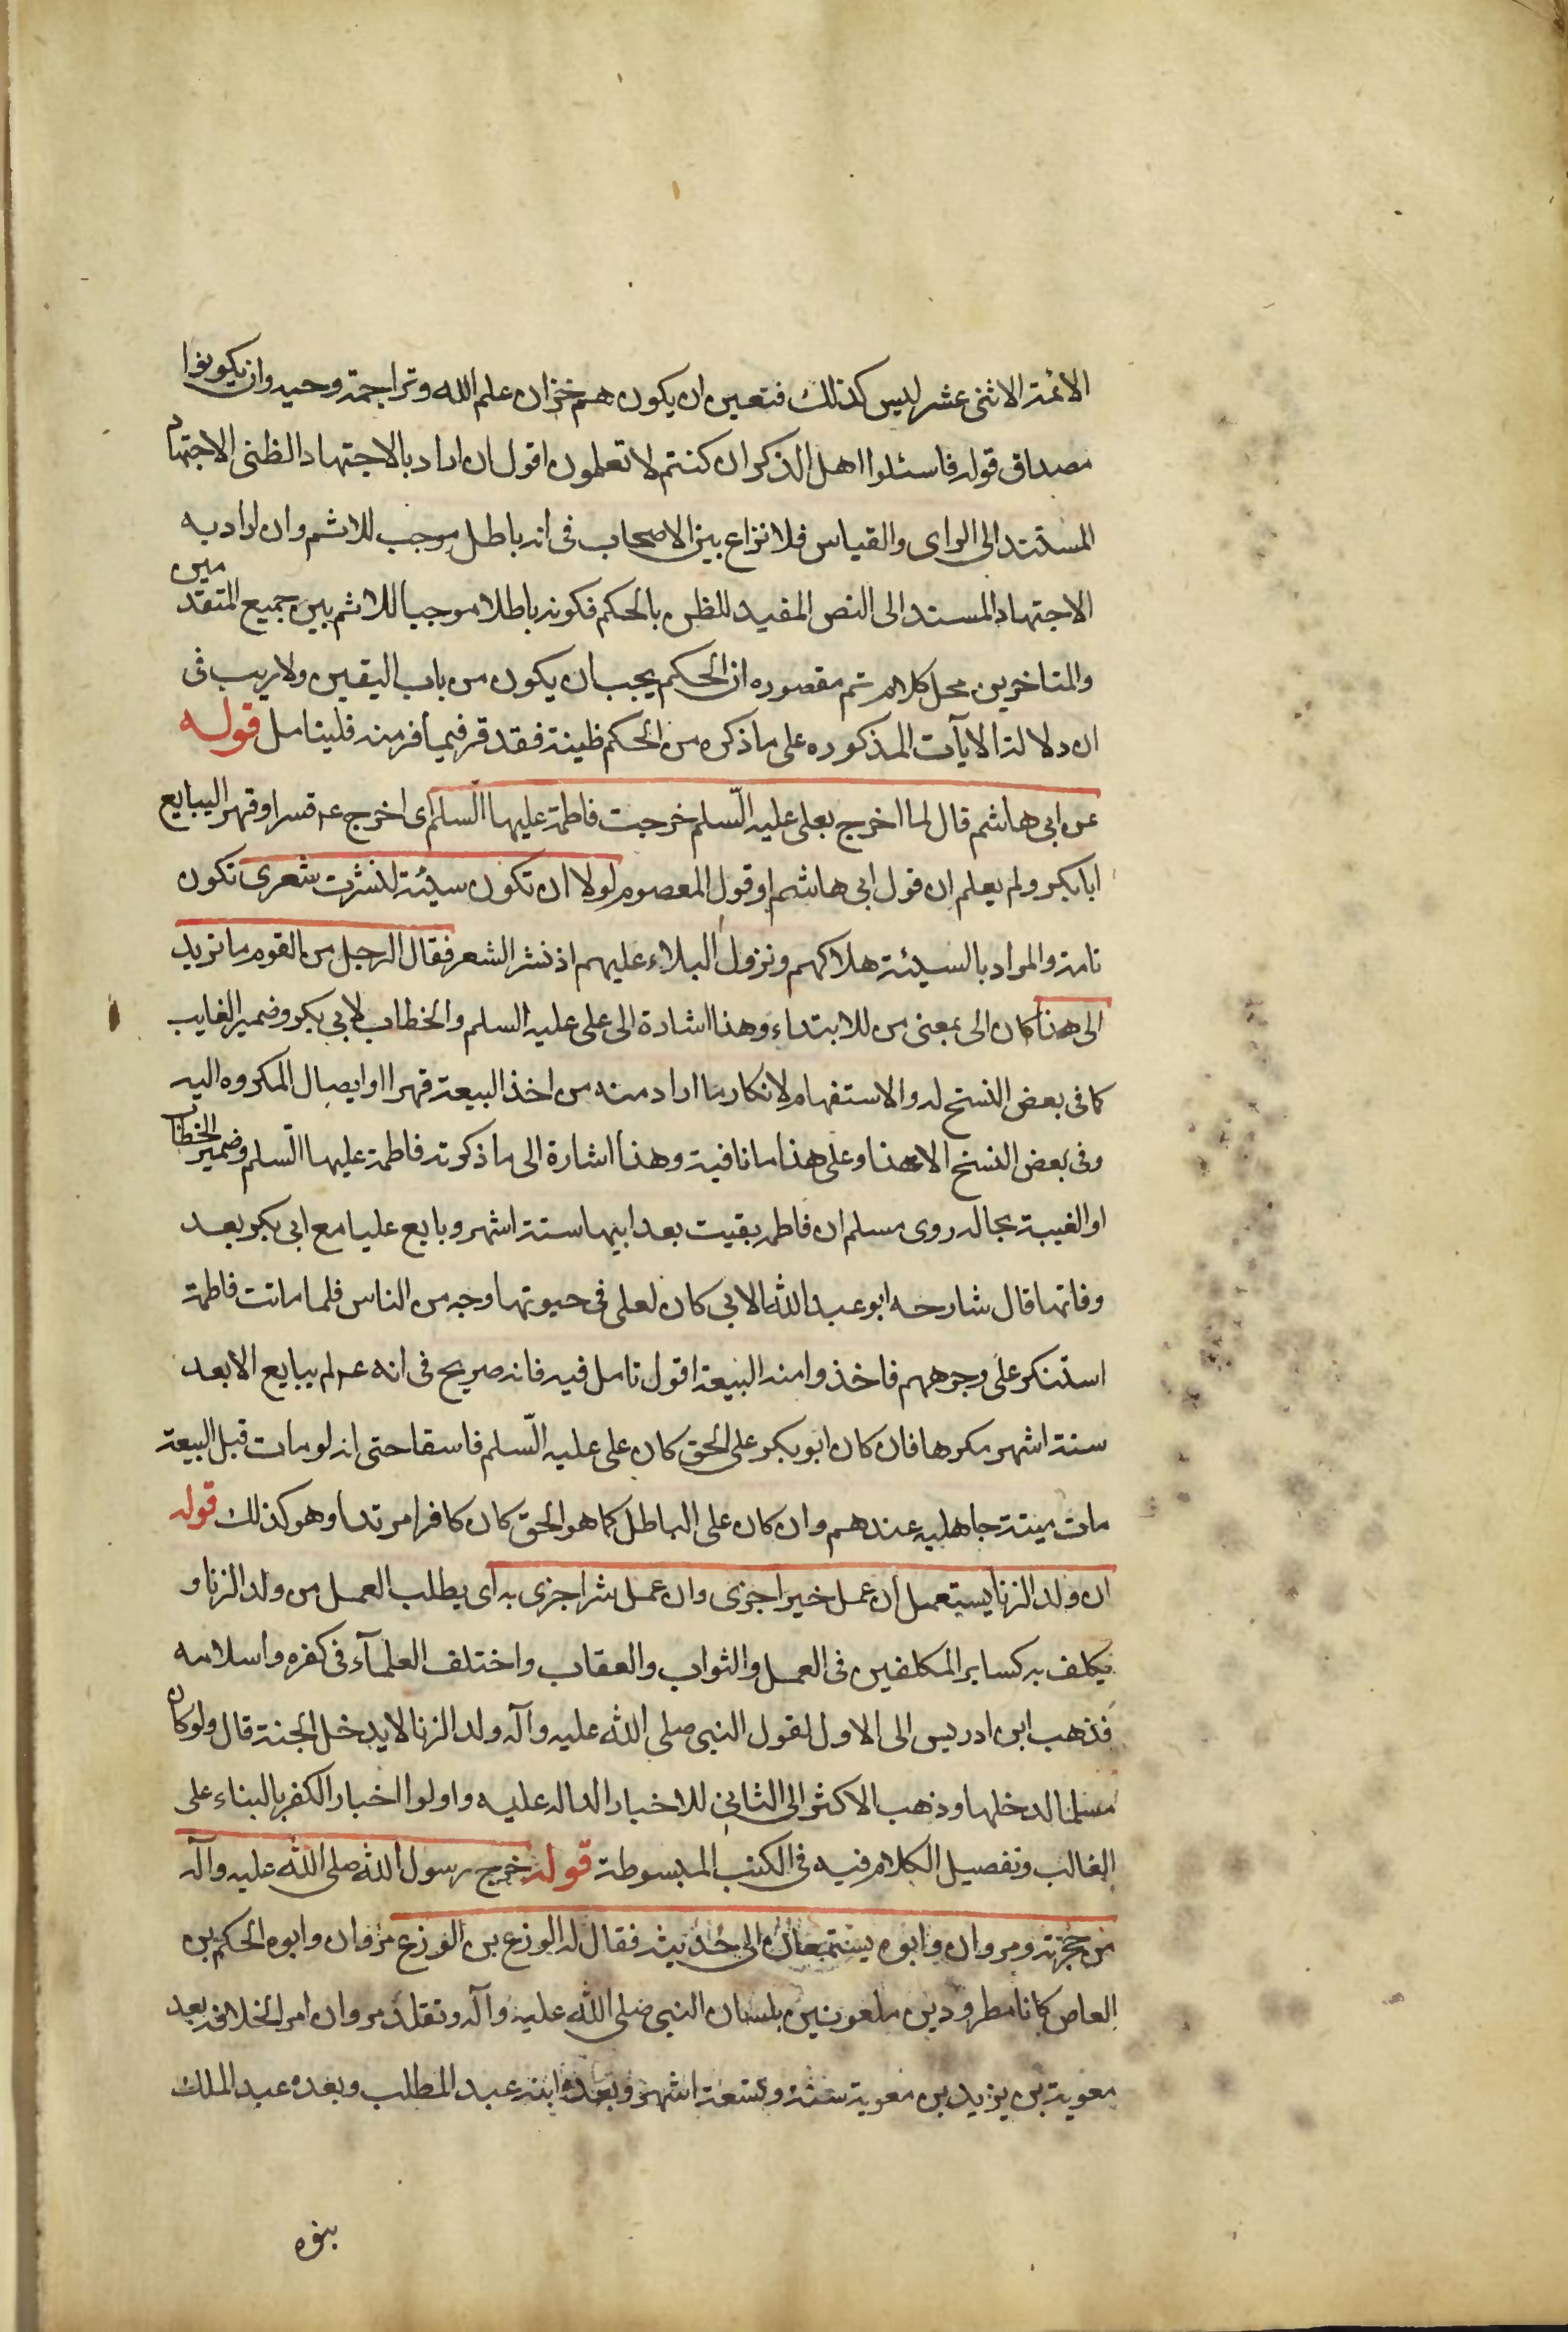 الائمة الاثنى عشر ليس كذلك فتعين ان يكون هم خزان علم الله وتراجمة وحيه وان يكونوا
مصداق قوله فاسئلوا اهل الذكر ان كنتم لا تعلمون اقول ان اراد بالاجتهاد الظنى الاجتهاد
المستند الى الراى والقياس فلا نزاع بين الاصحاب فى انه باطل موجب للاثم وان اراد به
الاجتهاد المسند الى النص المفيد للظن بالحكم فكونه باطلا موجبا للاثم بين جميع المتقدمين
والمتاخرين محل كلام ثم مقصوده ان الحكم يجب ان يكون من باب اليقين ولا ريب فى
ان دلالة الايات المذكوره على ما ذكره من الحكم ظينة فقد قر فيما فر منه فليتامل قوله
عن ابى هاشم قال لما اخرج بعلى عليه السّلم خرجت فاطمة عليها السلم اى اخرج عم قسرا وقهرا ليبايع
ابا بكر ولم يعلم ان قول ابى هاشم او قول المعصوم لولا ان تكون سيئة لنشرت شعرى تكون
تامة والمراد بالسيئة هلاكهم ونزول البلاء عليهم اذ نشر الشعر فقال الرجل من القوم ما تريد
الى هذا كان الى بمعنى من للابتداء وهذا اشارة الى على عليه السلم والخطاب لابي بكر وضمير الغايب
كما فى بعض النسخ له والاستفهام لانكار ما اراد منه من اخذ البيعة قهرا او ايصال المكروه اليه
وفى بعض النسخ الا هذا وعلى هذا ما نافية وهذا اشارة الى ما ذكرته فاطمة عليها السّلم وضمير الخطاب
او الغيبة بحاله روى مسلم ان فاطمه بقيت بعد ابيها ستة اشهر وبايع عليا مع ابى بكر بعد
وفاتها قال شارحه ابو عبد الله الابى كان لعلى فى حيوتها وجه من الناس فلما ماتت فاطمة
استنكر على وجوههم فاخذوا منه البيعة اقول تامل فيه فانه صريح فى انه عم لم يبايع الا بعد
ستة اشهر مكرها فان كان ابو بكر على الحق كان على عليه السّلم فاسقا حتى انه لو مات قبل البيعة
مات ميتة جاهليه عندهم وان كان على الباطل كما هو الحق كان كافرا مرتدا وهو كذلك قوله
ان ولد الزنا يستعمل ان عمل خيرا جزى وان عمل شرا جزى به اى يطلب العمل من ولد الزنا و
يكلف به كساير المكلفين فى العمل والثواب والعقاب واختلف العلمآء فى كفره واسلامه
فذهب ابن ادريس الى الاول لقول النبى صلى الله عليه وآله ولد الزنا لا يدخل الجنة قال ولو كان
مسلما لدخلها وذهب الاكثر الى الثانى للاخبار الداله عليه واولوا اخبار الكفر بالبناء على
الغالب وتفصيل الكلام فيه فى الكتب المبسوطة قوله خرج رسول الله صلى الله عليه وآله
من حجرته ومروان وابوه يستمعان الى حديثه فقال له الوزع بن الوزع مروان وابوه الحكم بن
العاص كانا مطرودين ملعونين بلسان النبى صلى الله عليه وآله وتقلد مروان امر الخلافه بعد
معوية بن يزيد بن معوية ستة وتسعة اشهر وبعده ابنه عبد المطلب وبعده عبد الملك
بنوه